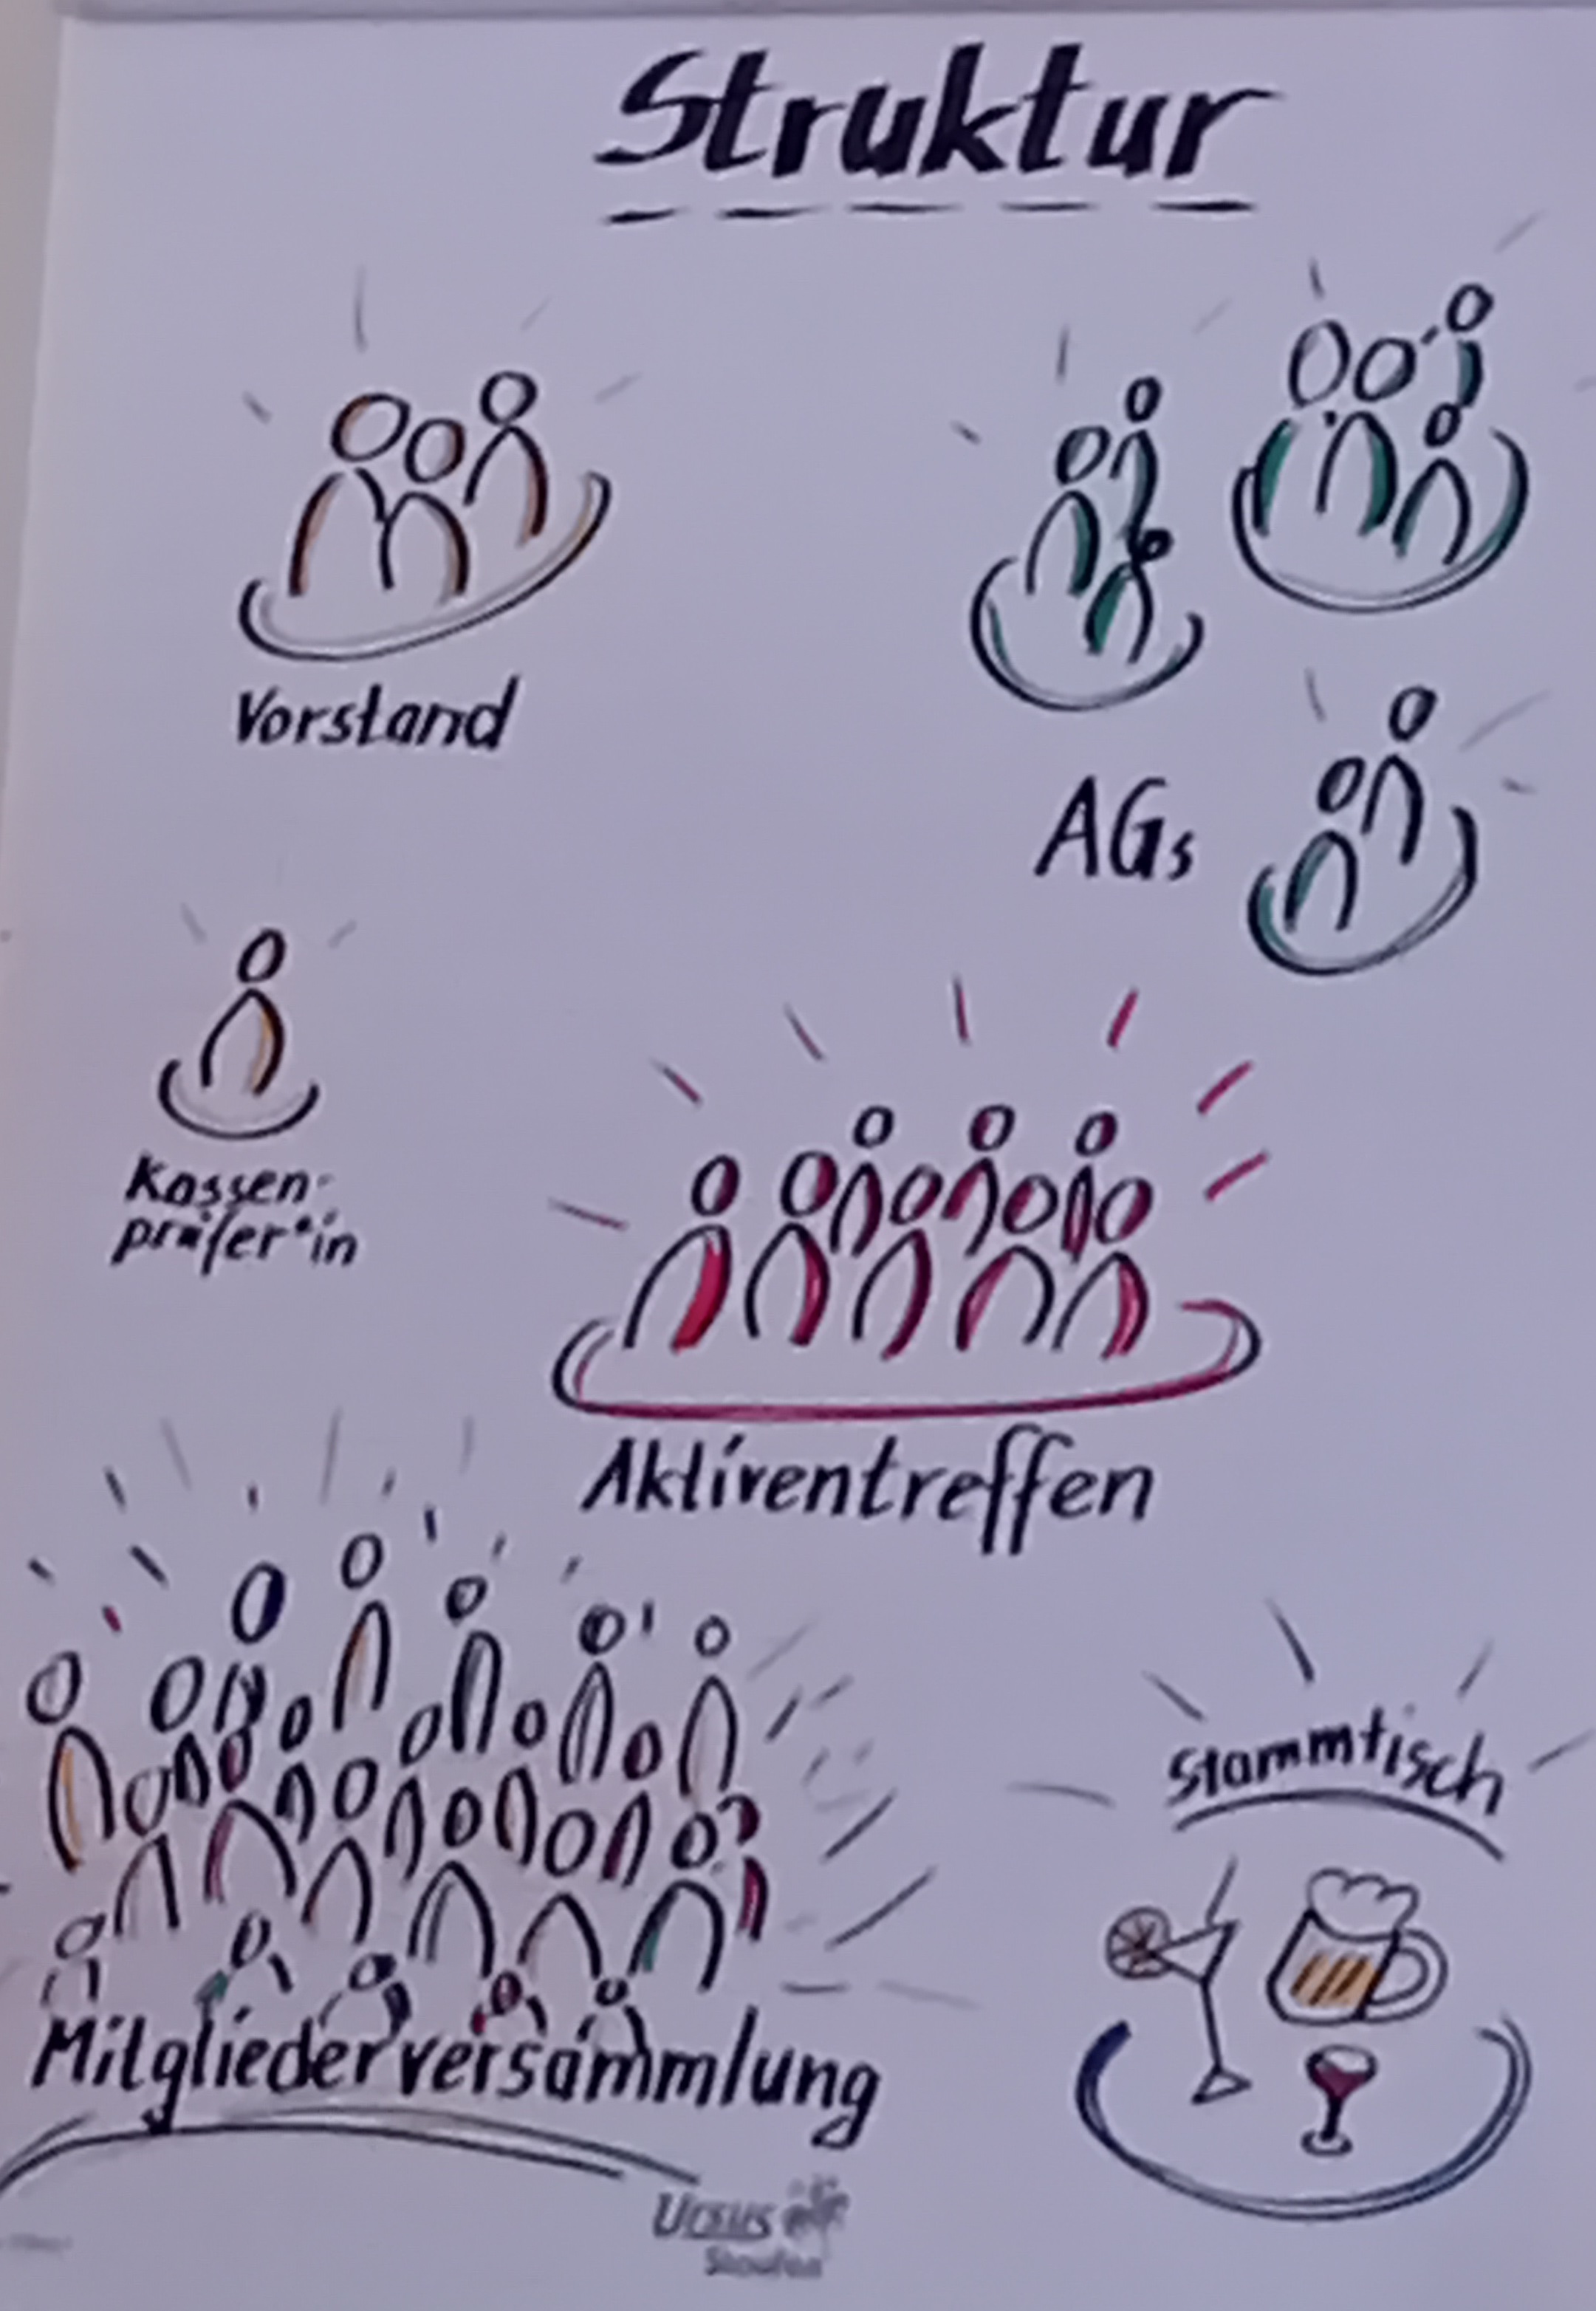 Struktur
Vorstand
AGs
Kassen-
prüfer*in
Aktiventreffen
Stammtisch
Mitgliederversammlung
Ursus